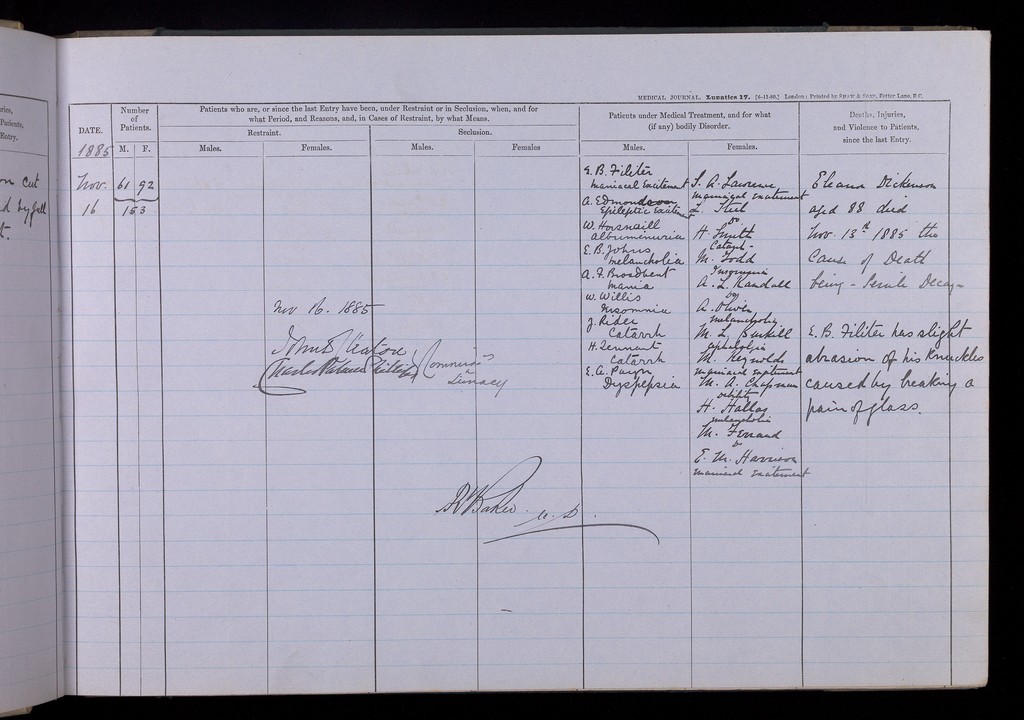 MEDICAL JOURNAL. Lunatics 17. [6-11-80.] London: Printed by SHAW & SONS, Fetter Lane, E.C.
DATE.
Number of Patients.
Patients who are, or since the last Entry have been, under Restraint or in Seclusion, when, and for
what Period, and Reasons, and, in Cases of Restraint, by what Means.
Patients under Medical Treatment, and for what
(if any) bodily Disorder.
Deaths, Injuries,
and Violence to Patients,
since the last Entry.
Restraint.
Seclusion.
M. F.
Males.
Females.
Males.
Females
Males.
Females.
1885
Nov.
16
61 92
153
Nov 16. 1885
Commrs
in
Lunacy
R Baker M.D.
E. B. Filiter
Maniacal Excitement
A. Edmondson
Epileptic Excitement
W. Horsnaill
albuminuria
E. B. Johns
melancholia
A. F. Broadbent
mania
W. Willis
Insomnia
J. Rider
Catarrh
H. Tennant
Catarrh
E. A. Payn
Dyspepsia
S. A. Lawrence
maniacal excitement
Do
H. Smith
Catarrh
M. Todd
Insomnia
A. L. Randall
Do
A. Oliver
melancholia
M. L.
M. Reynolds
maniacal excitement
M. A. Chapman
debility
H. Hallas
melancholia
M. Ferrand
Do
E. M. Harrison
maniacal excitement
Eleanor Dickenson
aged 88 died
Nov. 13th 1885 the
Cause of Death
being - Senile Decay -
E. B. Filiter has slight
abrasion of his knuckles
caused by breaking a
pain of glass.
cut
d by fall
ries,
Patients,
Entry.